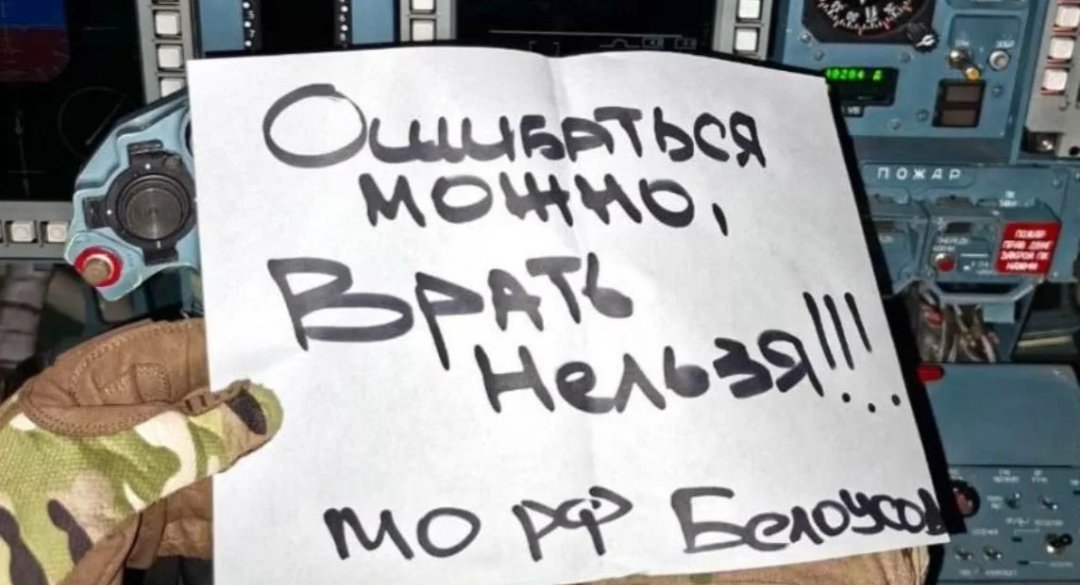 Ошибаться
можно,
Врать
Нельзя!!!
МО РФ Белоусов
10204 Д
ПОЖАР
ПОЖАР